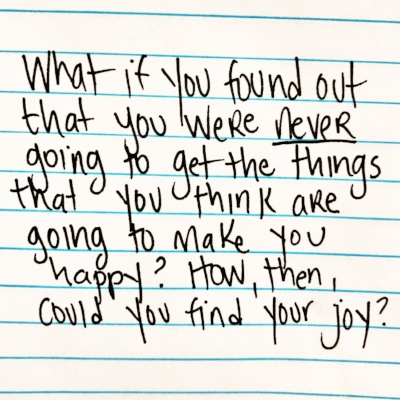 What if you found out
that you were never
going to get the things
that you think are
going to make you
happy? How, then,
could you find your joy?